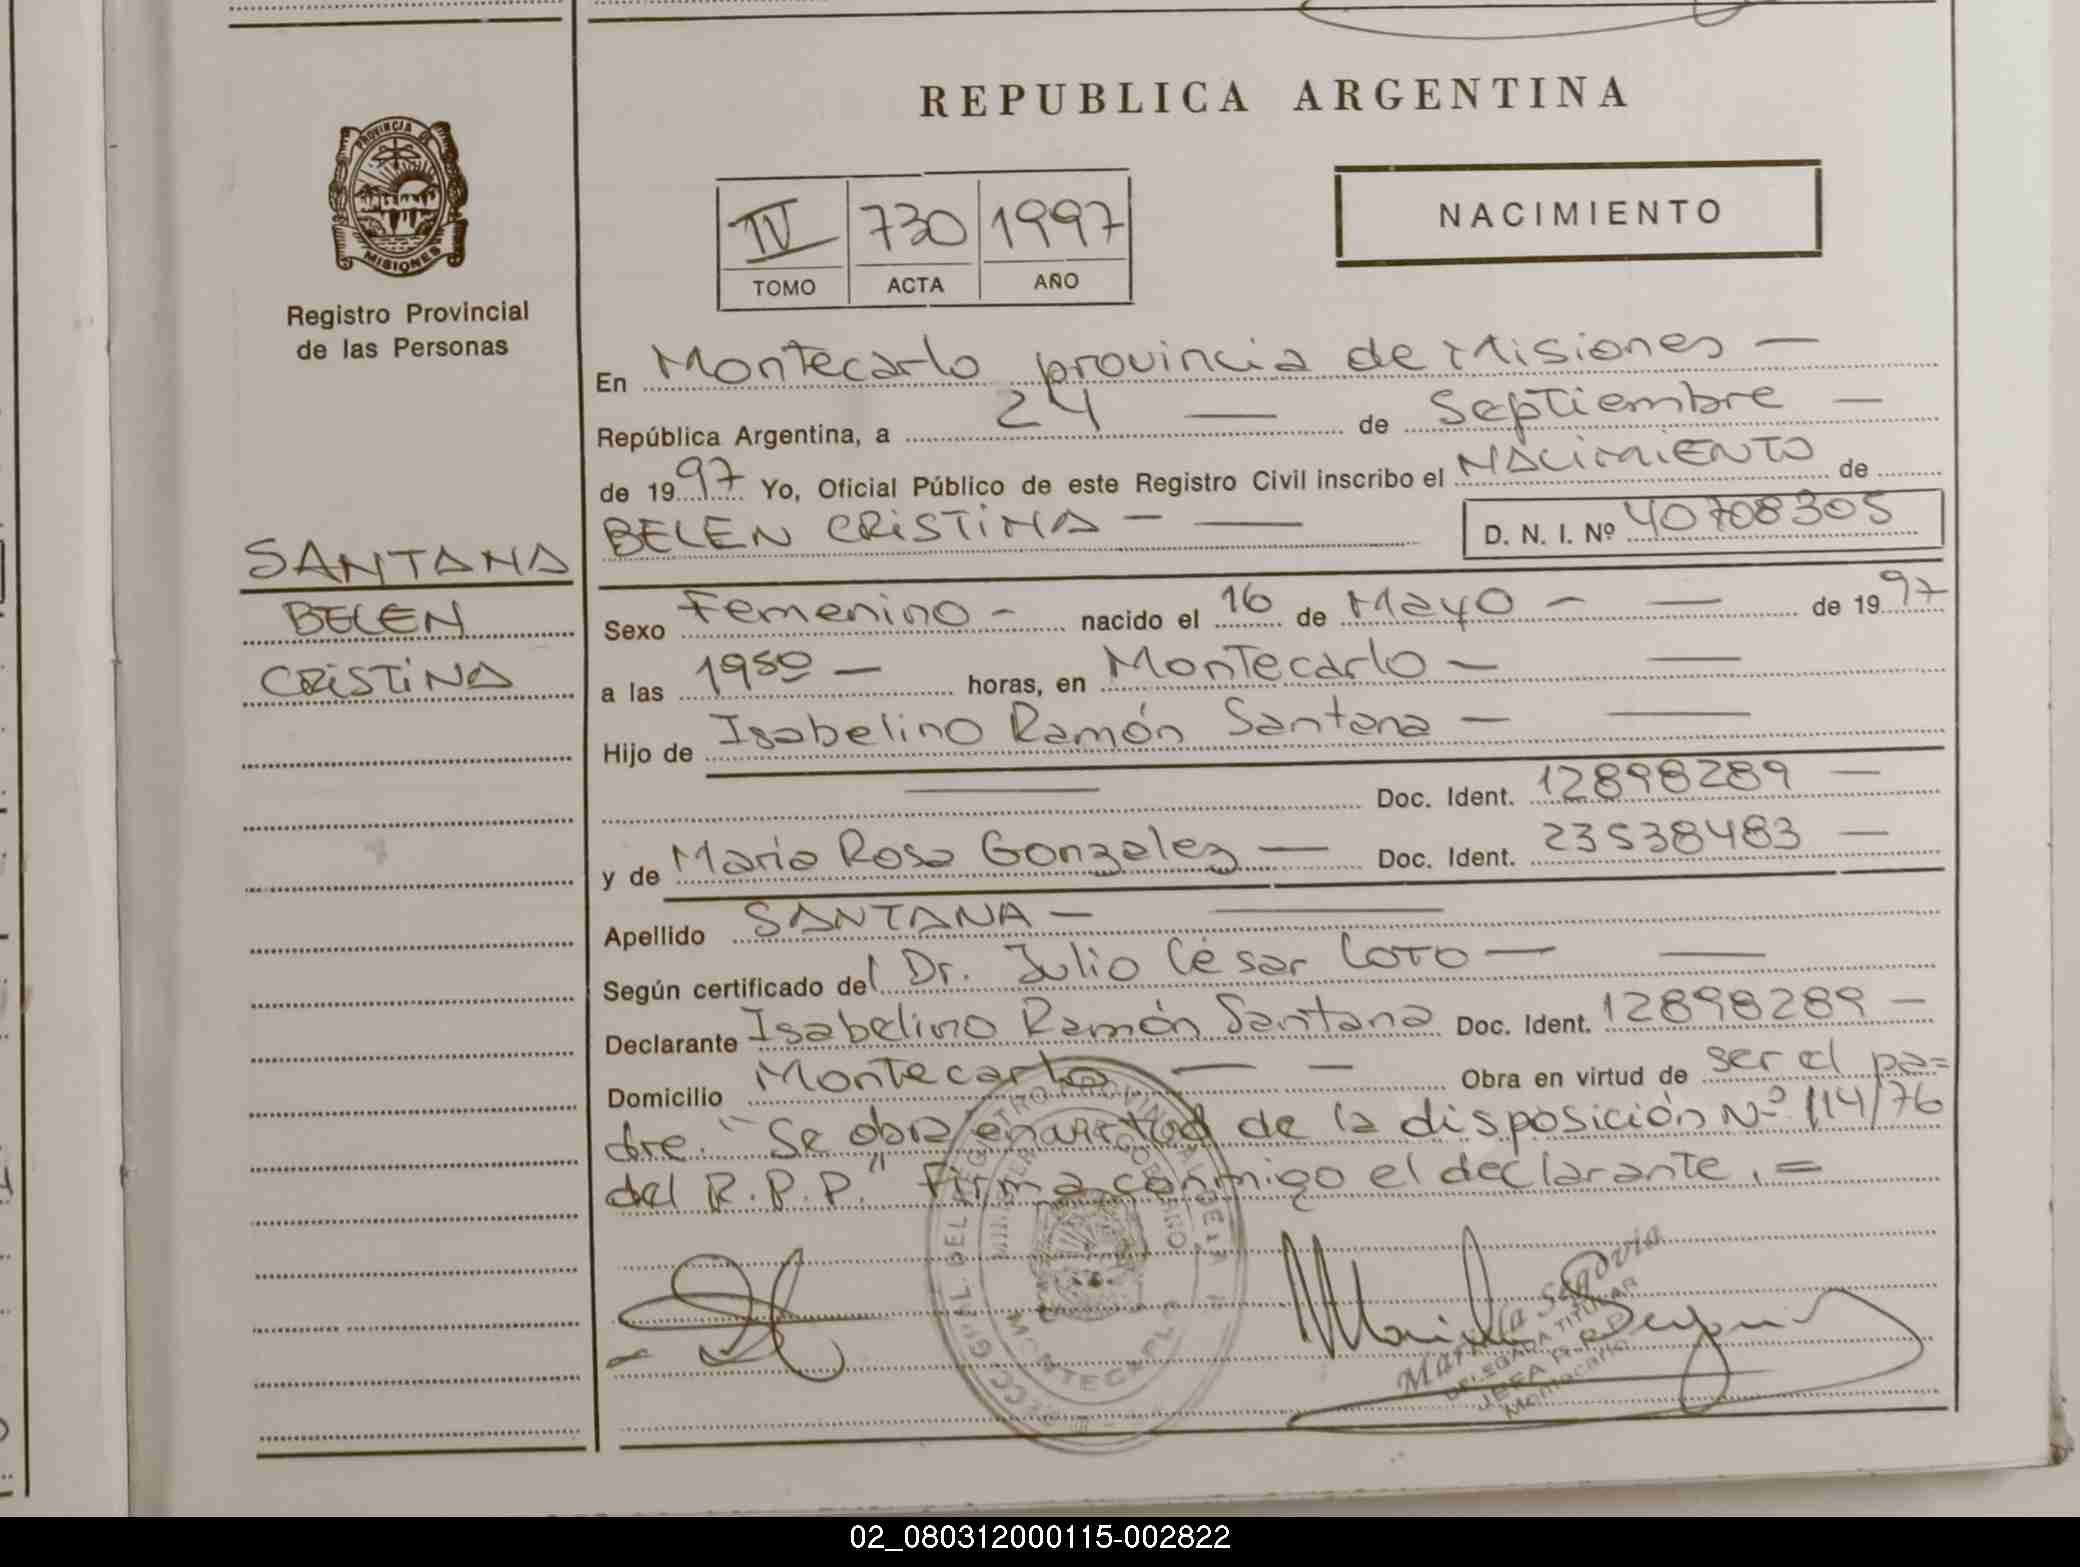 REPUBLICA ARGENTINA
PROVINCIA DE
MISIONES
Registro Provincial
de las Personas
IV 730 1997
TOMO ACTA AÑO
NACIMIENTO
En Montecarlo provincia de Misiones —
República Argentina, a 24 — de Septiembre —
de 1997 Yo, Oficial Público de este Registro Civil inscribo el NACIMIENTO de
BELEN CRISTINA — —
D. N. I. Nº 40708305
SANTANA
BELEN
CRISTINA
Sexo Femenino - nacido el 16 de Mayo — — de 1997
a las 1950 — horas, en Montecarlo — —
Hijo de Isabelino Ramón Santana — —
— Doc. Ident. 12898289 —
y de Maria Rosa Gonzalez — Doc. Ident. 23538483 —
Apellido SANTANA — —
Según certificado del Dr. Julio César Loto — —
Declarante Isabelino Ramón Santana Doc. Ident. 12898289 —
Domicilio Montecarlo — — Obra en virtud de ser el pa=
dre. "Se obra en virtud de la disposición Nº 114/76
del R.P.P." Firma conmigo el declarante. =
MONTECARLO
Mariela Segovia
DELEGADA TITULAR
JEFA R.P.P.
Montecarlo
02_080312000115-002822